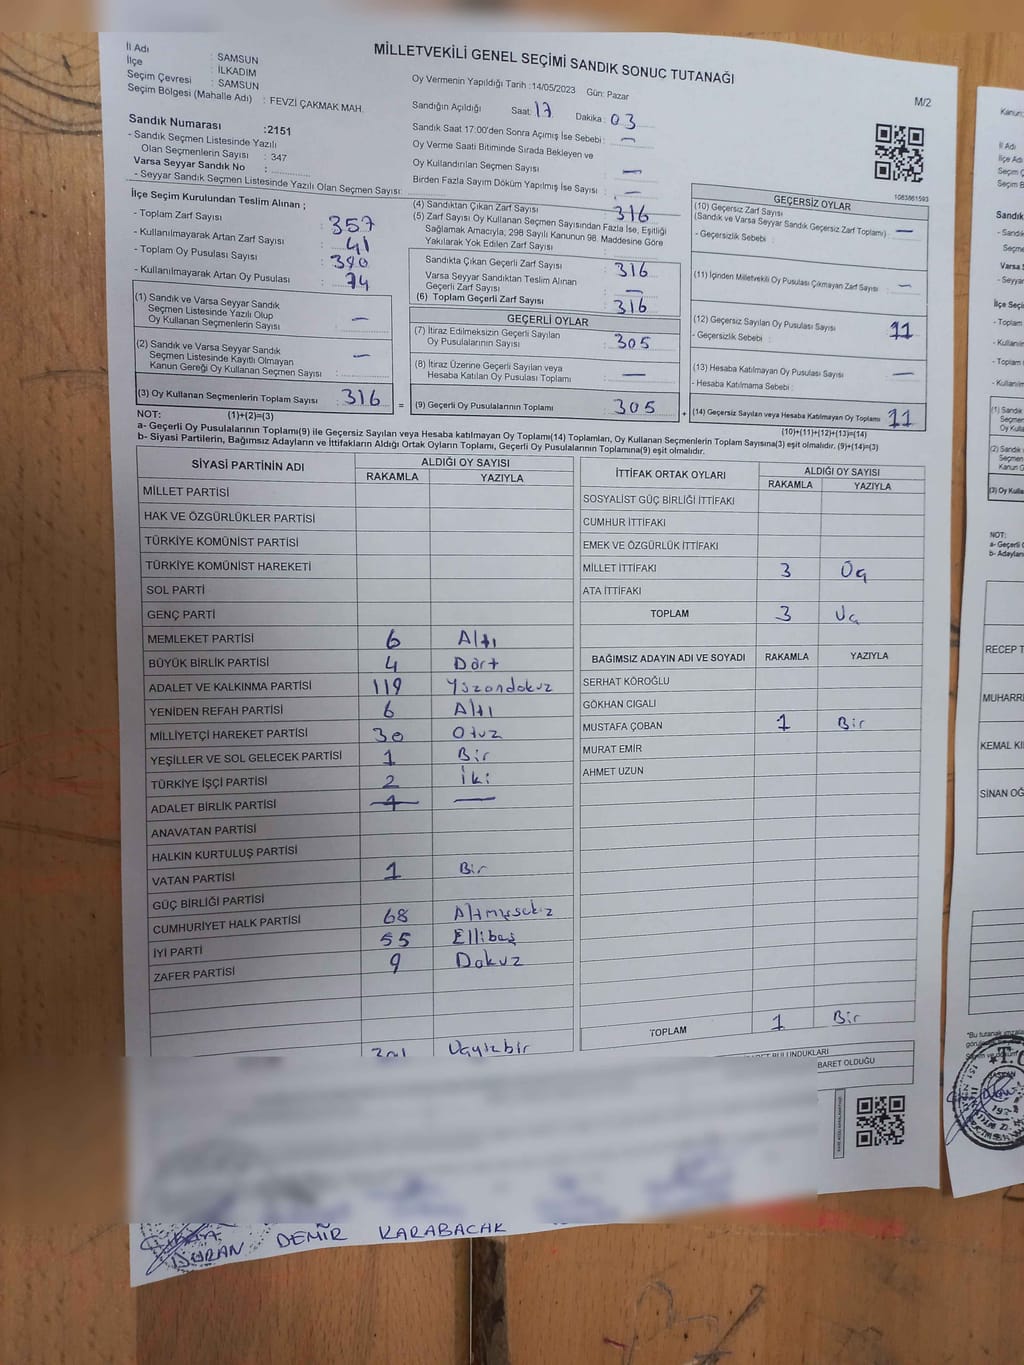 MİLLETVEKİLİ GENEL SEÇİMİ SANDIK SONUÇ TUTANAĞI
M/2
İl Adı : SAMSUN
İlçe : İLKADIM
Seçim Çevresi : SAMSUN
Seçim Bölgesi (Mahalle Adı) : FEVZİ ÇAKMAK MAH.
Sandık Numarası :2151
- Sandık Seçmen Listesinde Yazılı
Olan Seçmenlerin Sayısı : 347
Varsa Seyyar Sandık No :
- Seyyar Sandık Seçmen Listesinde Yazılı Olan Seçmen Sayısı:
Oy Vermenin Yapıldığı Tarih :14/05/2023 Gün: Pazar
Sandığın Açıldığı Saat: 17 Dakika : 03
Sandık Saat 17:00'den Sonra Açımış İse Sebebi : —
Oy Verme Saati Bitiminde Sırada Bekleyen ve
Oy Kullandırılan Seçmen Sayısı : —
Birden Fazla Sayım Döküm Yapılmış İse Sayısı : —
1083861593
İlçe Seçim Kurulundan Teslim Alınan ;
- Toplam Zarf Sayısı : 357
- Kullanılmayarak Artan Zarf Sayısı : 41
- Toplam Oy Pusulası Sayısı : 390
- Kullanılmayarak Artan Oy Pusulası : 74
(1) Sandık ve Varsa Seyyar Sandık
Seçmen Listesinde Yazılı Olup
Oy Kullanan Seçmenlerin Sayısı : —
(2) Sandık ve Varsa Seyyar Sandık
Seçmen Listesinde Kayıtlı Olmayan
Kanun Gereği Oy Kullanan Seçmen Sayısı : —
(3) Oy Kullanan Seçmenlerin Toplam Sayısı : 316
(4) Sandıktan Çıkan Zarf Sayısı : 316
(5) Zarf Sayısı Oy Kullanan Seçmen Sayısından Fazla İse, Eşitliği
Sağlamak Amacıyla, 298 Sayılı Kanunun 98. Maddesine Göre
Yakılarak Yok Edilen Zarf Sayısı :
Sandıkta Çıkan Geçerli Zarf Sayısı : 316
Varsa Seyyar Sandıktan Teslim Alınan
Geçerli Zarf Sayısı : —
(6) Toplam Geçerli Zarf Sayısı : 316
GEÇERLİ OYLAR
(7) İtiraz Edilmeksizin Geçerli Sayılan
Oy Pusulalarının Sayısı : 305
(8) İtiraz Üzerine Geçerli Sayılan veya
Hesaba Katılan Oy Pusulası Toplamı : —
= (9) Geçerli Oy Pusulalarının Toplamı : 305
GEÇERSİZ OYLAR
(10) Geçersiz Zarf Sayısı
(Sandık ve Varsa Seyyar Sandık Geçersiz Zarf Toplamı) : —
- Geçersizlik Sebebi :
(11) İçinden Milletvekili Oy Pusulası Çıkmayan Zarf Sayısı : —
(12) Geçersiz Sayılan Oy Pusulası Sayısı : 11
- Geçersizlik Sebebi :
(13) Hesaba Katılmayan Oy Pusulası Sayısı : —
- Hesaba Katılmama Sebebi :
+ (14) Geçersiz Sayılan veya Hesaba Katılmayan Oy Toplamı : 11
NOT: (1)+(2)=(3)
(10)+(11)+(12)+(13)=(14)
a- Geçerli Oy Pusulalarının Toplamı(9) ile Geçersiz Sayılan veya Hesaba katılmayan Oy Toplamı(14) Toplamları, Oy Kullanan Seçmenlerin Toplam Sayısına(3) eşit olmalıdır. (9)+(14)=(3)
b- Siyasi Partilerin, Bağımsız Adayların ve İttifakların Aldığı Ortak Oyların Toplamı, Geçerli Oy Pusulalarının Toplamına(9) eşit olmalıdır.
SİYASİ PARTİNİN ADI ALDIĞI OY SAYISI
RAKAMLA YAZIYLA
MİLLET PARTİSİ
HAK VE ÖZGÜRLÜKLER PARTİSİ
TÜRKİYE KOMÜNİST PARTİSİ
TÜRKİYE KOMÜNİST HAREKETİ
SOL PARTİ
GENÇ PARTİ
MEMLEKET PARTİSİ 6 Altı
BÜYÜK BİRLİK PARTİSİ 4 Dört
ADALET VE KALKINMA PARTİSİ 119 Yüzondokuz
YENİDEN REFAH PARTİSİ 6 Altı
MİLLİYETÇİ HAREKET PARTİSİ 30 Otuz
YEŞİLLER VE SOL GELECEK PARTİSİ 1 Bir
TÜRKİYE İŞÇİ PARTİSİ 2 İki
ADALET BİRLİK PARTİSİ 1 —
ANAVATAN PARTİSİ
HALKIN KURTULUŞ PARTİSİ
VATAN PARTİSİ 1 Bir
GÜÇ BİRLİĞİ PARTİSİ
CUMHURİYET HALK PARTİSİ 68 Altmışsekiz
İYİ PARTİ 55 Ellibeş
ZAFER PARTİSİ 9 Dokuz
301 Üçyüzbir
İTTİFAK ORTAK OYLARI ALDIĞI OY SAYISI
RAKAMLA YAZIYLA
SOSYALİST GÜÇ BİRLİĞİ İTTİFAKI
CUMHUR İTTİFAKI
EMEK VE ÖZGÜRLÜK İTTİFAKI
MİLLET İTTİFAKI 3 Üç
ATA İTTİFAKI
TOPLAM 3 Üç
BAĞIMSIZ ADAYIN ADI VE SOYADI RAKAMLA YAZIYLA
SERHAT KÖROĞLU
GÖKHAN CIGALI
MUSTAFA ÇOBAN 1 Bir
MURAT EMİR
AHMET UZUN
TOPLAM 1 Bir
BULUNDUKLARI
BARET OLDUĞU
DURAN DEMİR KARABACAK
Kanun:
İl Adı
İlçe Adı
Seçim
Seçim B
Sandık
- Sandık
Seçme
Varsa S
- Seyya
İlçe Seçi
- Toplam
- Kullanılm
- Toplam
- Kullanıln
(1) Sandık
Seçme
Oy Kulla
(2) Sandık
Seçmen
Kanun G
(3) Oy Kulla
NOT:
a- Geçerli O
b- Adayların
RECEP T
MUHARRE
KEMAL KI
SİNAN OĞ
T.C